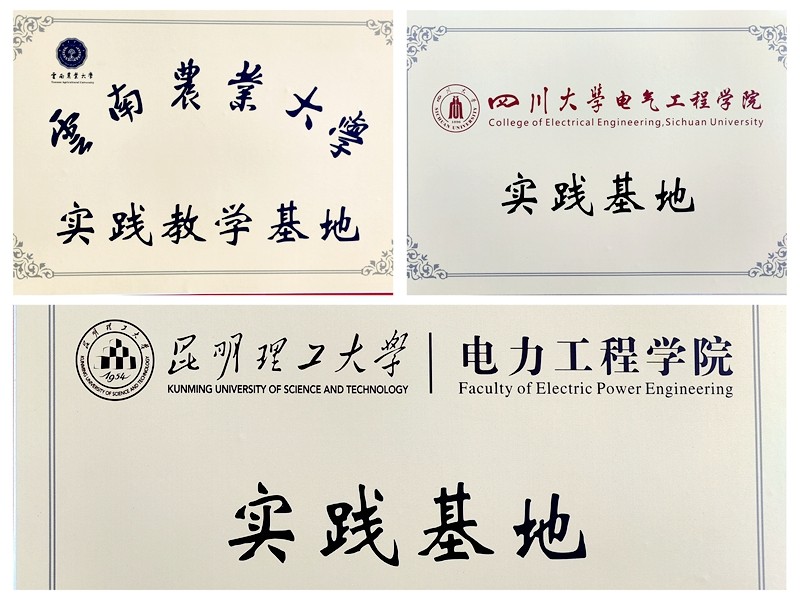 雲南農業大學
Yunnan Agricultural University
雲南農業大学
实践教学基地
四川大學
SICHUAN UNIVERSITY
1896
四川大學电气工程学院
College of Electrical Engineering,Sichuan University
实践基地
昆明理工大学
1954
KUNMING UNIVERSITY OF SCIENCE AND TECHNOLOGY
昆明理工大學
KUNMING UNIVERSITY OF SCIENCE AND TECHNOLOGY
电力工程学院
Faculty of Electric Power Engineering
实践基地